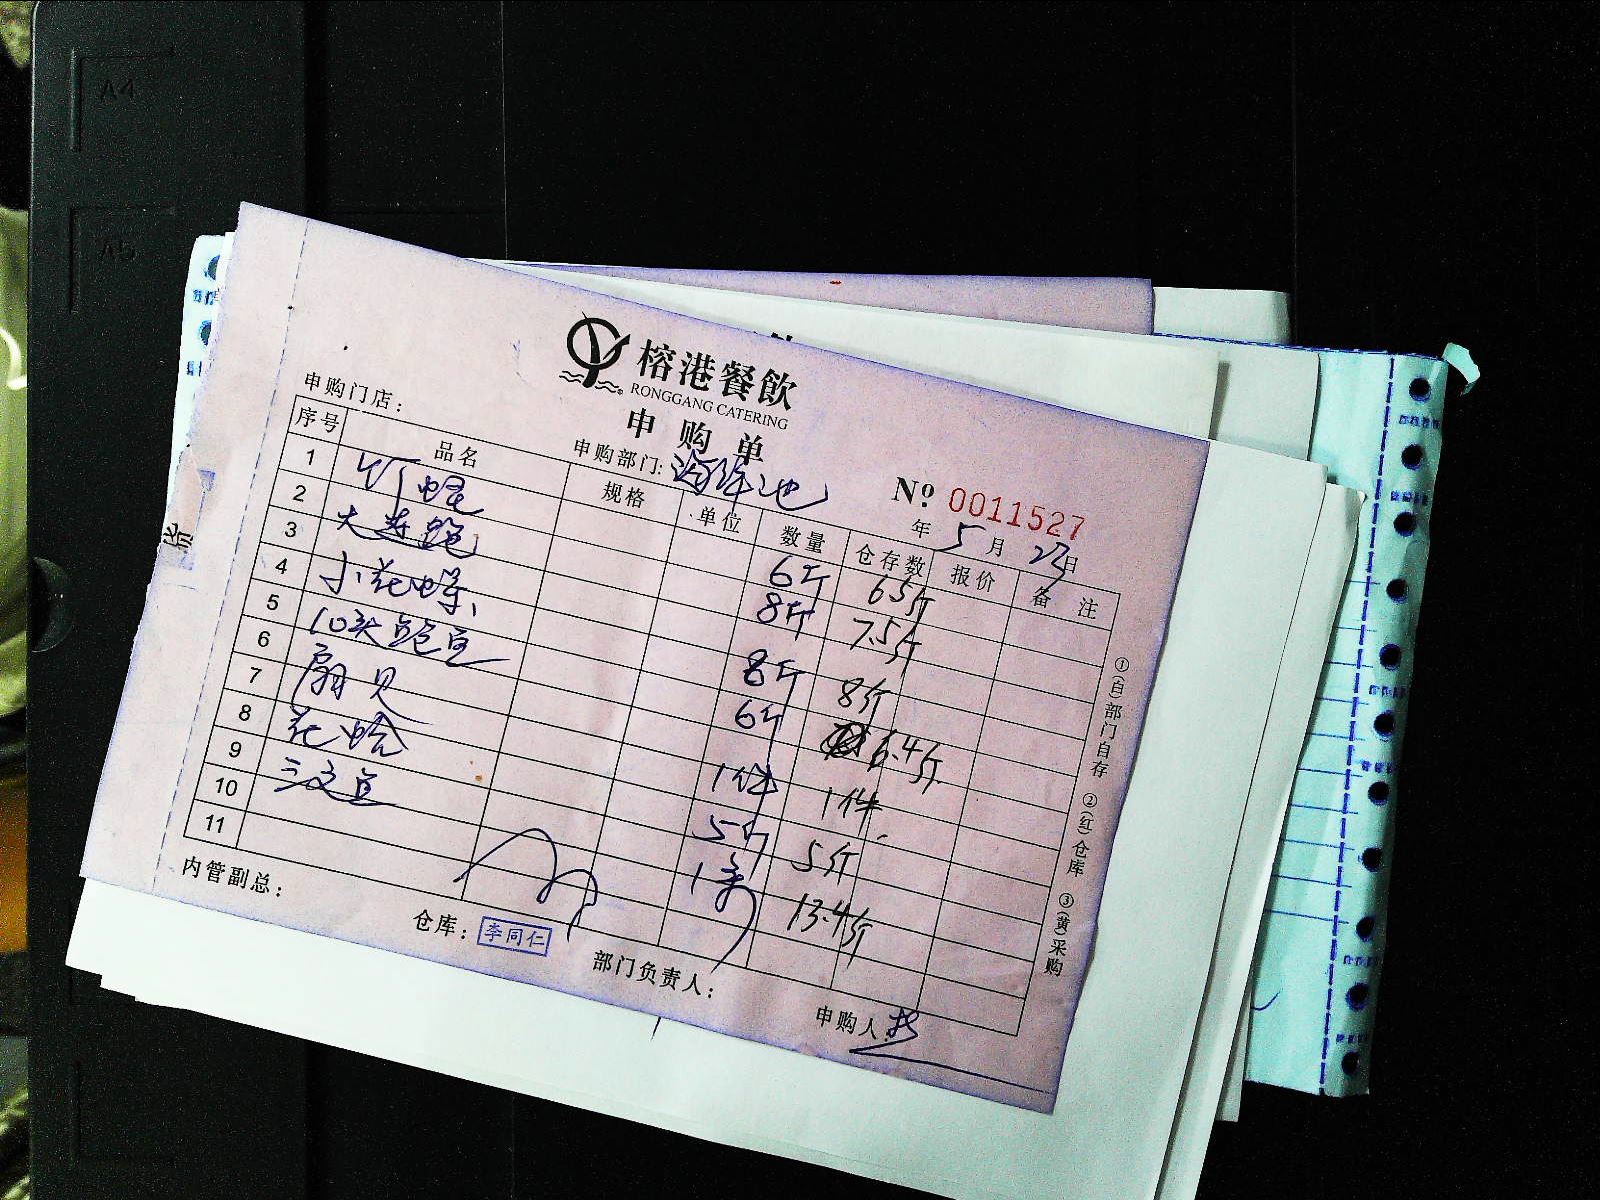 A4
A5
榕港餐飲
RONGGANG CATERING
申购单
申购门店：
申购部门: 海鲜池
№ 0011527
年 5 月 23 日
序号 品名 规格 单位 数量 仓存数 报价 备注
1 竹蛏 6斤 6.5斤
2 大连鲍 8斤 7.5斤
3 小花螺 8斤 8斤
4 10头鲍鱼 6斤 6.4斤
5 扇贝 1件 1件
6 花蛤 5斤 5斤
7 三文鱼 1条 13.4斤
8
9
10
11
①(白)部门自存 ②(红)仓库 ③(黄)采购
内管副总：
仓库： 李同仁
部门负责人：
申购人: